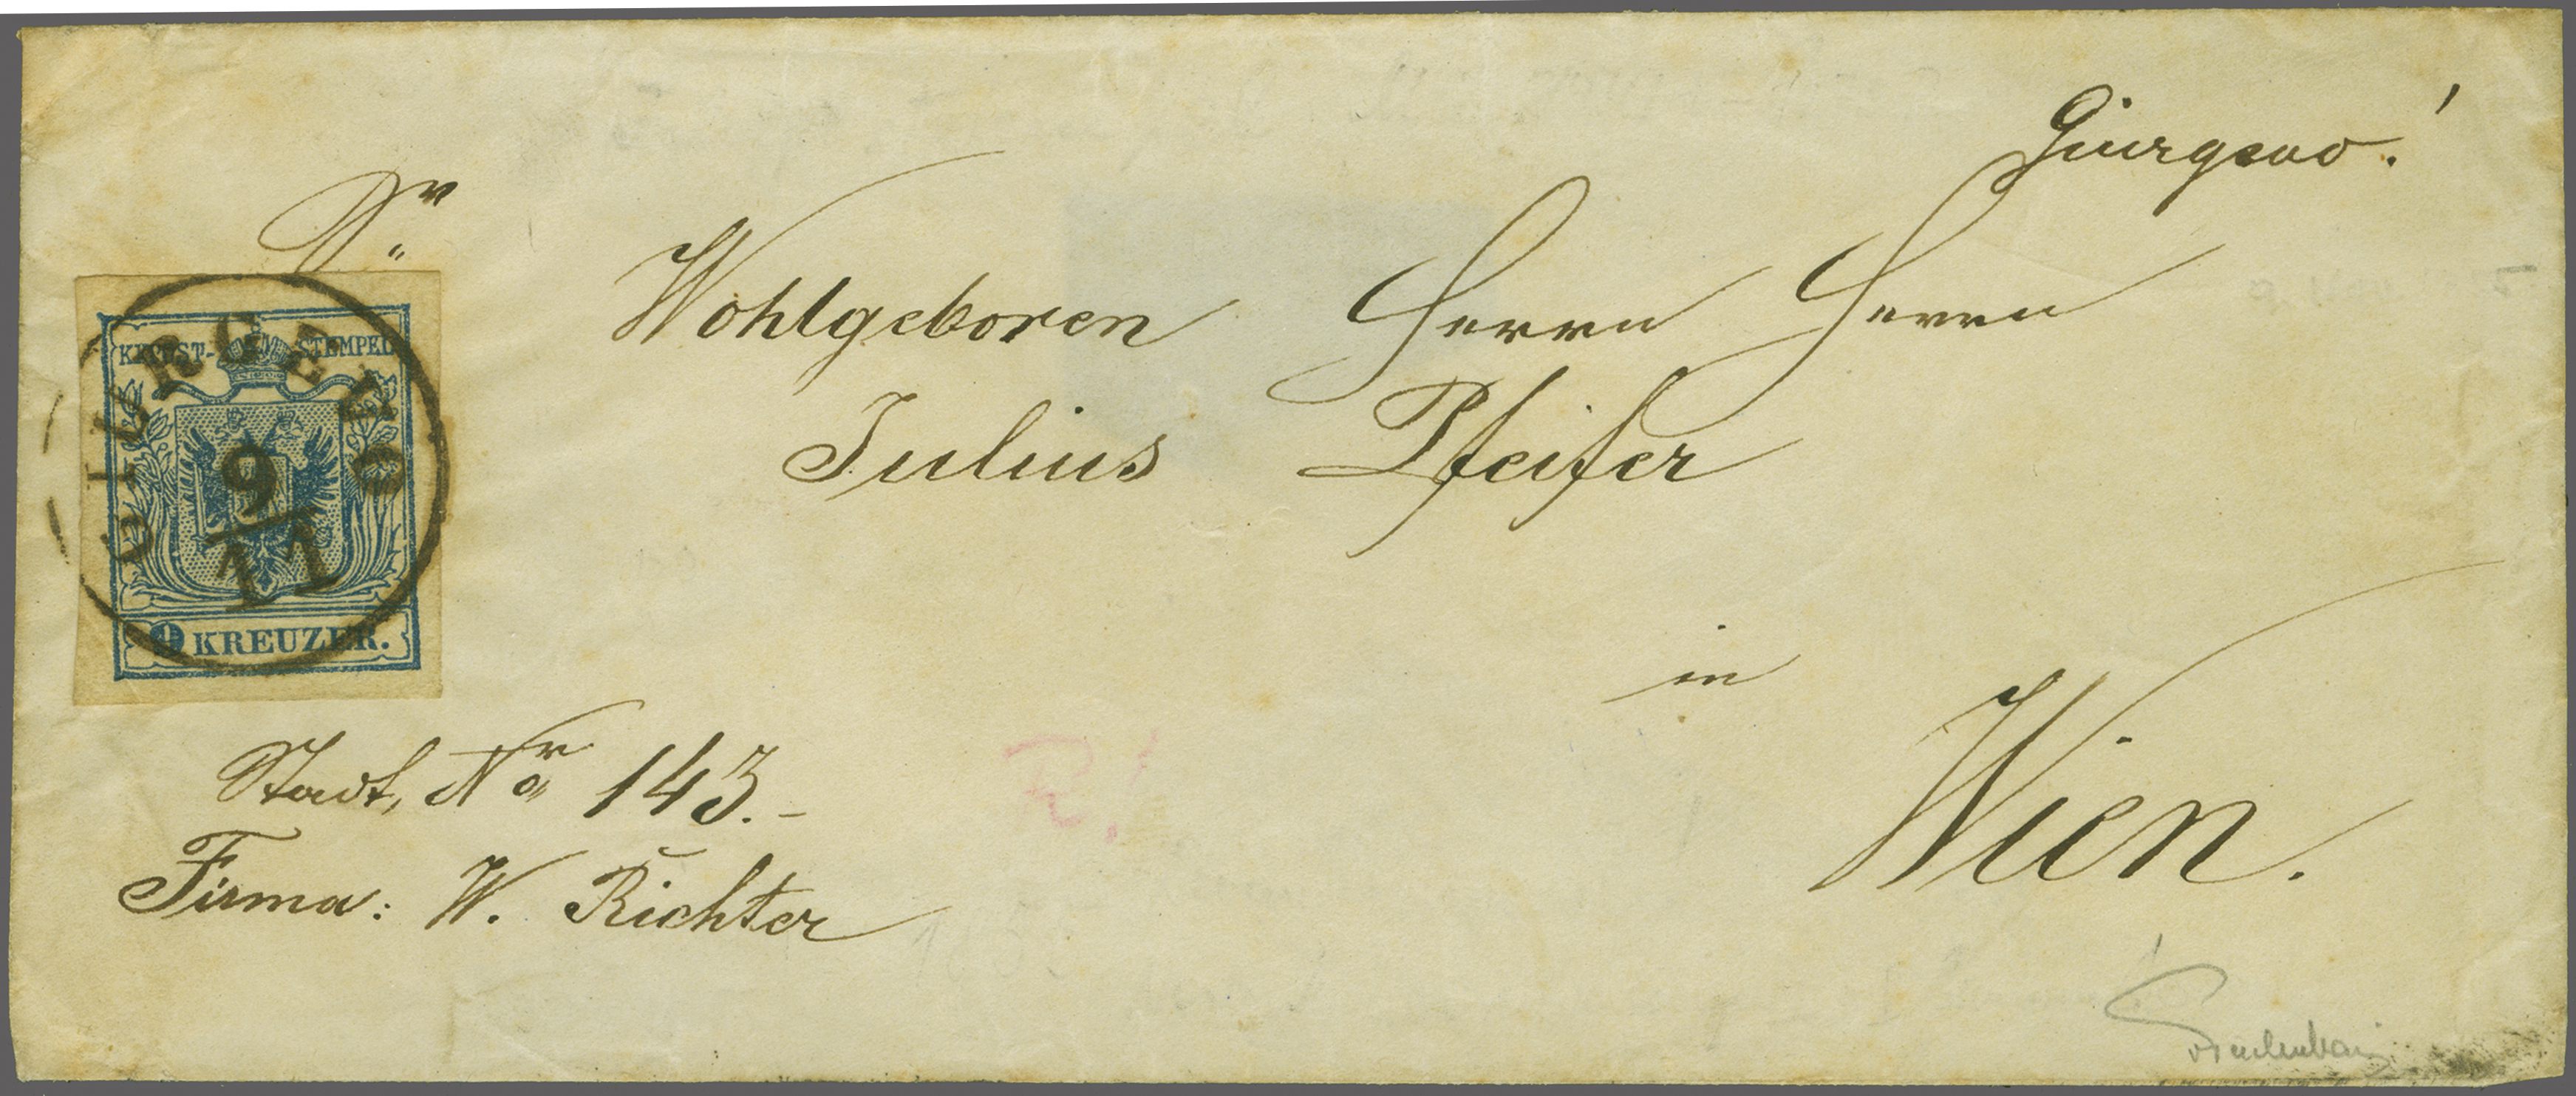 Giurgevo.
Sr.
Wohlgeboren Herrn Herrn
Julius Pfeifer
in
Wien.
KKPOST-STEMPEL
GIURGEVO
9
11
9 KREUZER.
Stadt, Nro 143.-
Firma: W. Richter
R!